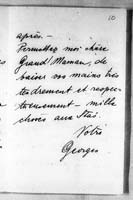 10
après –
Permettez moi chère
Grand'Maman, de
baiser vos mains très
tendrement et respec-
tueusement – mille
choses aux Stas.
Votre
Georges